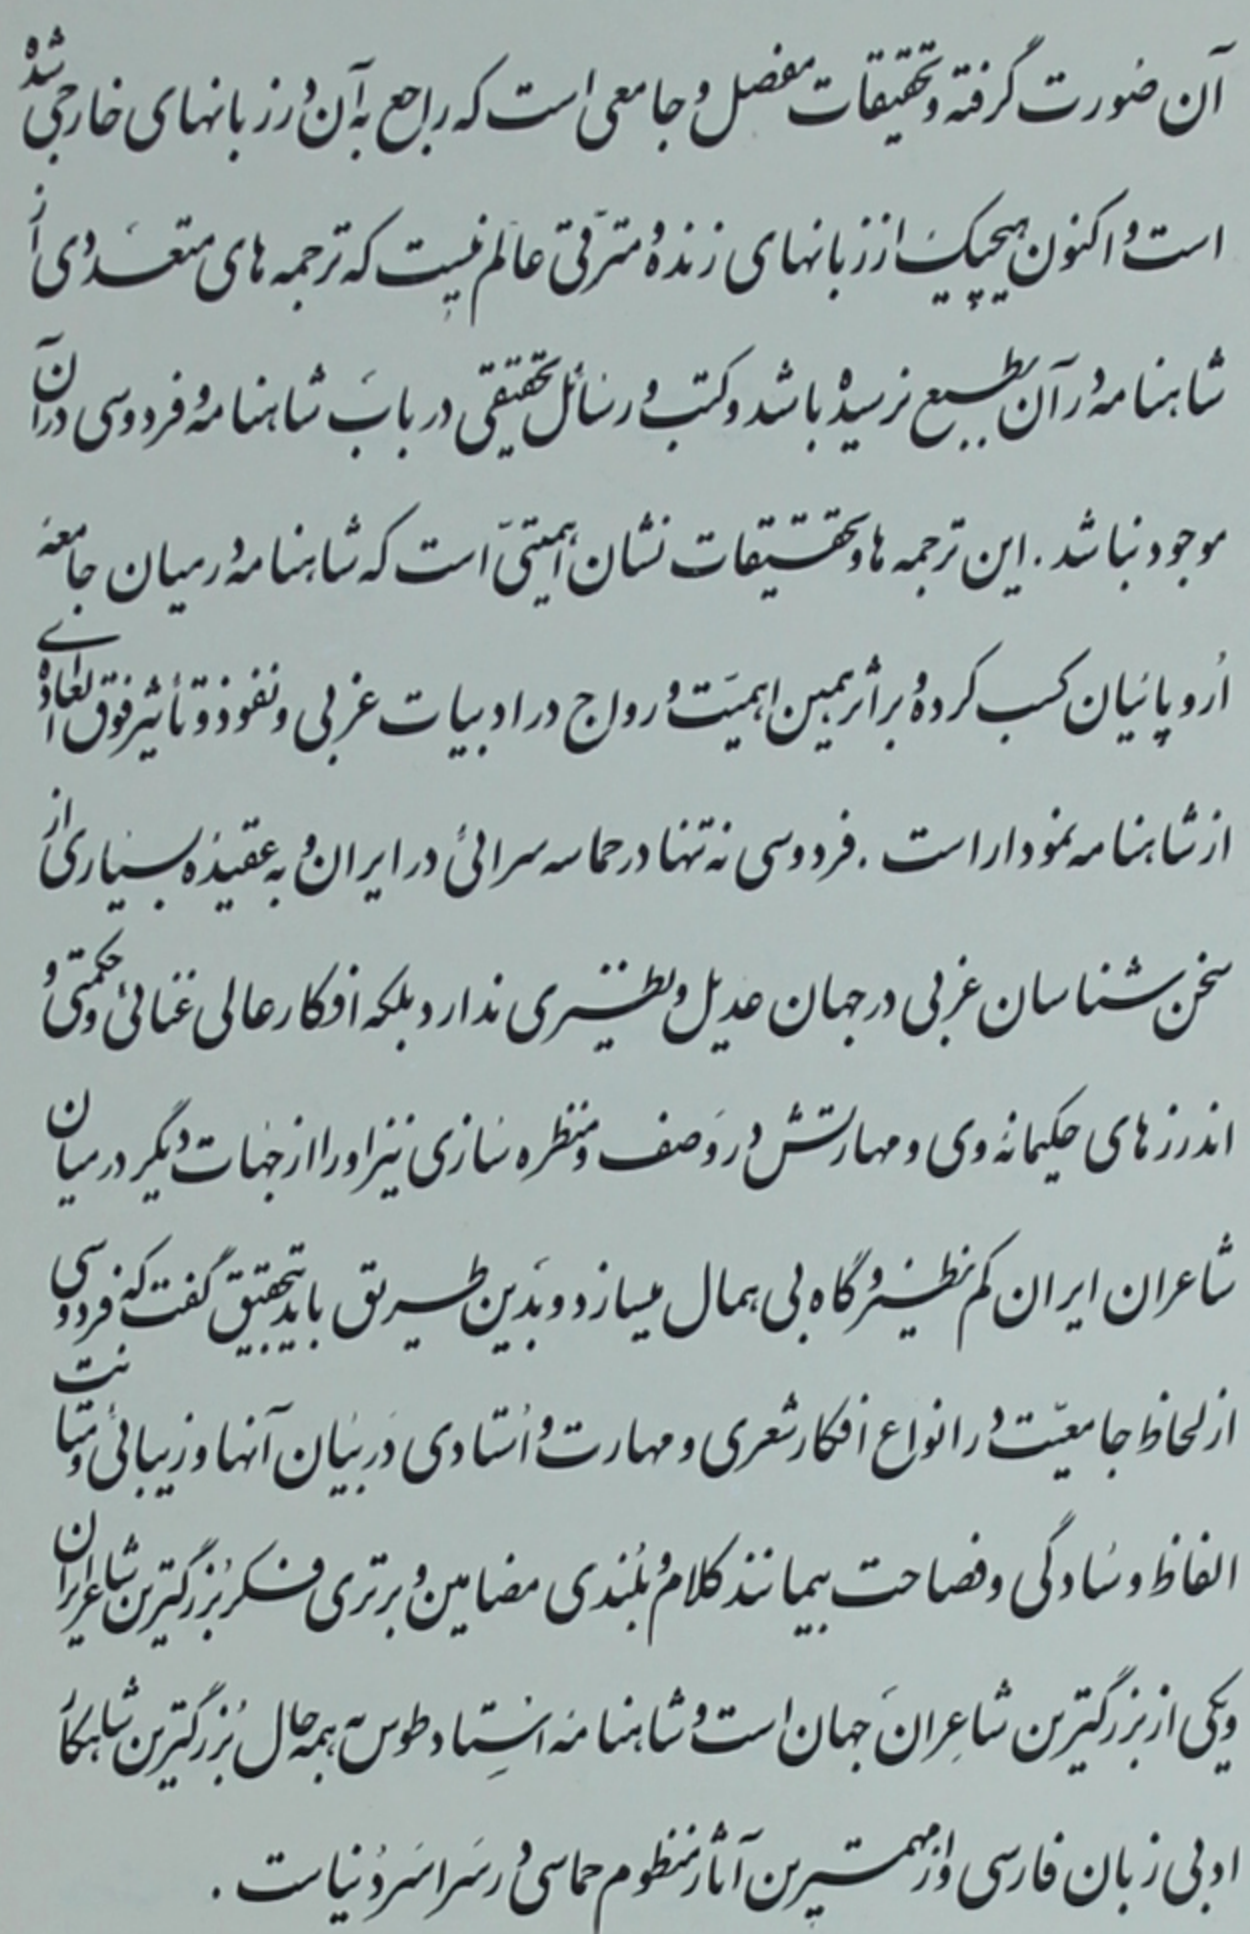 آن صورت گرفته و تحقیقات مفصل و جامعی است که راجع به آن در زبانهای خارجی شده
است و اکنون هیچیک از زبانهای زنده و مترقی عالم نیست که ترجمه های متعددی از
شاهنامه در آن بطبع نرسیده باشد و کتب و رسائل تحقیقی در باب شاهنامه و فردوسی در آن
موجود نباشد. این ترجمه ها و تحقیقات نشان اهمیتی است که شاهنامه در میان جامعه
اروپائیان کسب کرده و بر اثر همین اهمیت و رواج در ادبیات غربی و نفوذ و تأثیر فوق العاده ای
از شاهنامه نمودار است. فردوسی نه تنها در حماسه سرائی در ایران و به عقیده بسیاری از
سخن شناسان غربی در جهان عدیل و نظیری ندارد بلکه افکار عالی غنائی و حکمتی و
اندرزهای حکیمانه وی و مهارتش در وصف و منظره سازی نیز او را از جهات دیگر در میان
شاعران ایران کم نظیر و گاه بی همال میسازد و بدین طریق باید بتحقیق گفت که فردوسی
از لحاظ جامعیت در انواع افکار شعری و مهارت و استادی در بیان آنها و زیبائی و متانت
الفاظ و سادگی و فصاحت بیمانند کلام و بلندی مضامین و برتری فکر بزرگترین شاعر ایران
و یکی از بزرگترین شاعران جهان است و شاهنامه استاد طوس به همه حال بزرگترین شاهکار
ادبی زبان فارسی و از مهمترین آثار منظوم حماسی در سراسر دنیاست.